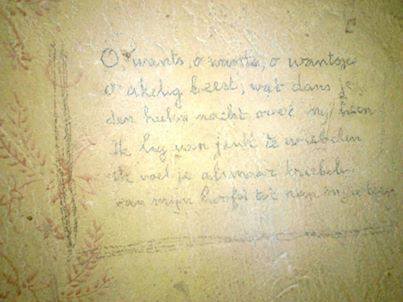 O wants, o wants, o wantsje
o akelig beest, wat dans je
den heelen nacht over mijn been
Ik lig van jeuk te
ik voel je almaar kriebelen
van mijn hoofd tot aan mijn teen